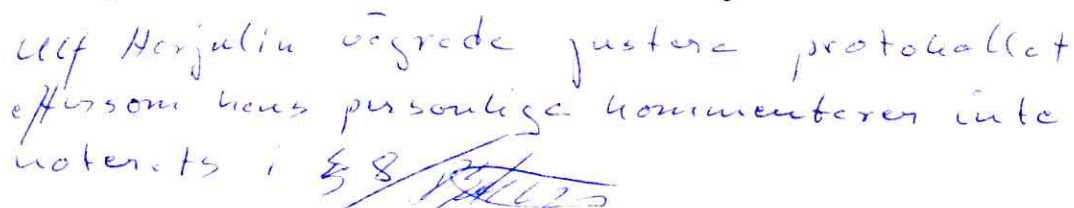 Ulf Herjulin vägrade justera protokollet
eftersom hans personliga kommentarer inte
noterats i § 8